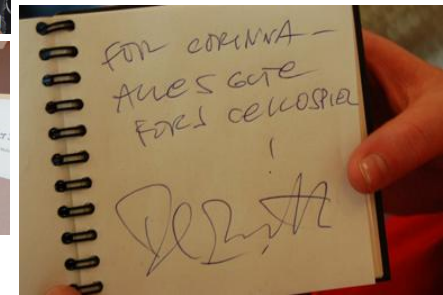 FÜR CORINNA –
ALLES GUTE
FÜRS CELLOSPIEL
!